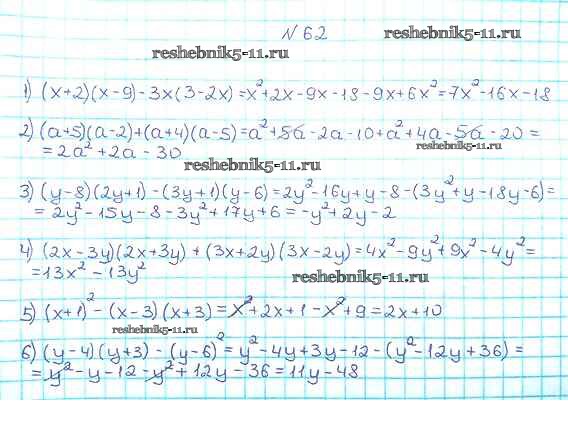 № 62
reshebnik5-11.ru
reshebnik5-11.ru
1) (x+2)(x-9)-3x(3-2x)=x²+2x-9x-18-9x+6x²=7x²-16x-18
2) (a+5)(a-2)+(a+4)(a-5)=a²+5a-2a-10+a²+4a-5a-20=
reshebnik5-11.ru
=2a²+2a-30
reshebnik5-11.ru
3) (y-8)(2y+1)-(3y+1)(y-6)=2y²-16y+y-8-(3y²+y-18y-6)=
=2y²-15y-8-3y²+17y+6=-y²+2y-2
4) (2x-3y)(2x+3y)+(3x+2y)(3x-2y)=4x²-9y²+9x²-4y²=
=13x²-13y²
reshebnik5-11.ru
5) (x+1)²-(x-3)(x+3)=x²+2x+1-x²+9=2x+10
reshebnik5-11.ru
6) (y-4)(y+3)-(y-6)²=y²-4y+3y-12-(y²-12y+36)=
=y²-y-12-y²+12y-36=11y-48